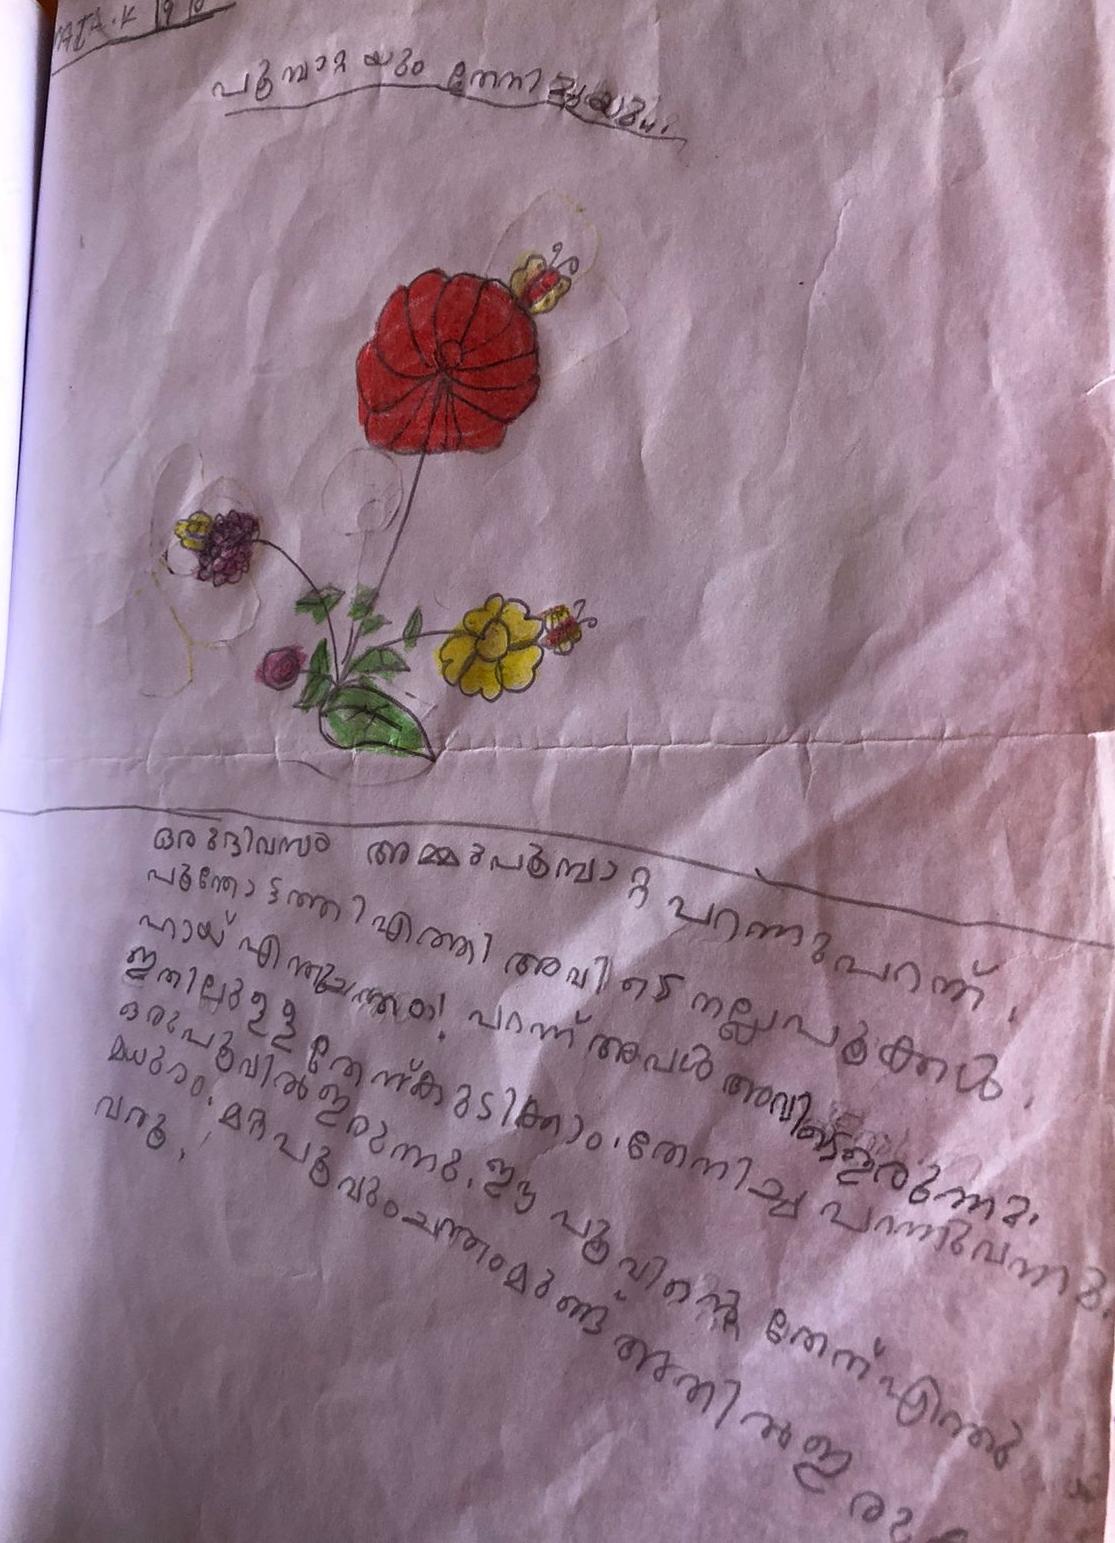 പൂമ്പാറ്റയും തേനീച്ചയും.
ഒരു ദിവസം അമ്മുപൂമ്പാറ്റ പറന്നുപറന്ന്
പൂന്തോട്ടത്തി എത്തി അവിടെ നല്ലപൂക്കൾ.
ഹായ് എന്തുചന്തം! പറന്ന് അപൾ അവിടെഇരുന്നു.
ഇതിലുള്ള തേന്കുടിക്കാം. തേനിച്ച പറന്നുവന്നു.
ഒരുപൂവിൽഇരുന്നു. ഈ പൂവിന്റെ തേന് എന്തു
മധുരം. മറ്റപൂവും ചന്തംമുണ്ട് അതിൽഇരു
വരു.